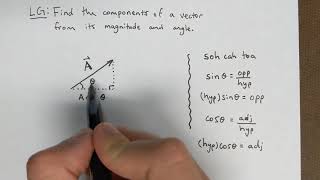 LG: Find the components of a vector
from its magnitude and angle.
A
θ
A θ
soh cah toa
sinθ = opp/hyp
(hyp)sinθ = opp
cosθ = adj/hyp
(hyp)cosθ = adj